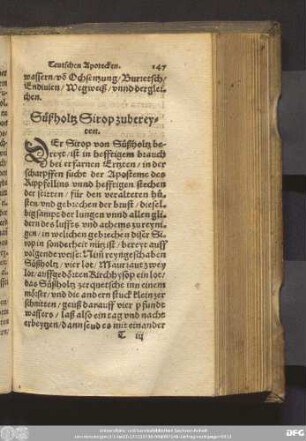 Teutschen Apotecken. 147
wassern/vō Ochsenzung/Burretsch/
Endiuien/Wegweiß/vnnd dergleichen.
Süßholtz Sirop zuberey-
ten.
DEr Sirop von Süßholtz be-
reyt/ist in hefftigem brauch
bei erfarnen Ertzten/in der
scharpffen sucht der Aposteme des
Rippfellins vnnd hefftigen stechen
der seitten/für den veralteten hů-
sten/vnd gebrechen der brust/diesel-
big sampt der lungen vnnd allen gli-
dern des luffts vnd athems zu reyni-
gen/in welichen gebrechen diser Si-
rop in sonderheit nütz ist/bereyt auff
volgende weise: Nim reyn geschaben
Süßholtz/vier lot/Maurraut zwey
lot/auffgedörten Kirchhysop ein lot/
das Süßholtz zerquetsche inn einem
mörser/vnd die andern stuck kleinzer
schnitten/geuß darauff vier pfundt
wassers/laß also ein tag vnd nacht
erbeytzen/dann seud es mit einander
T iij